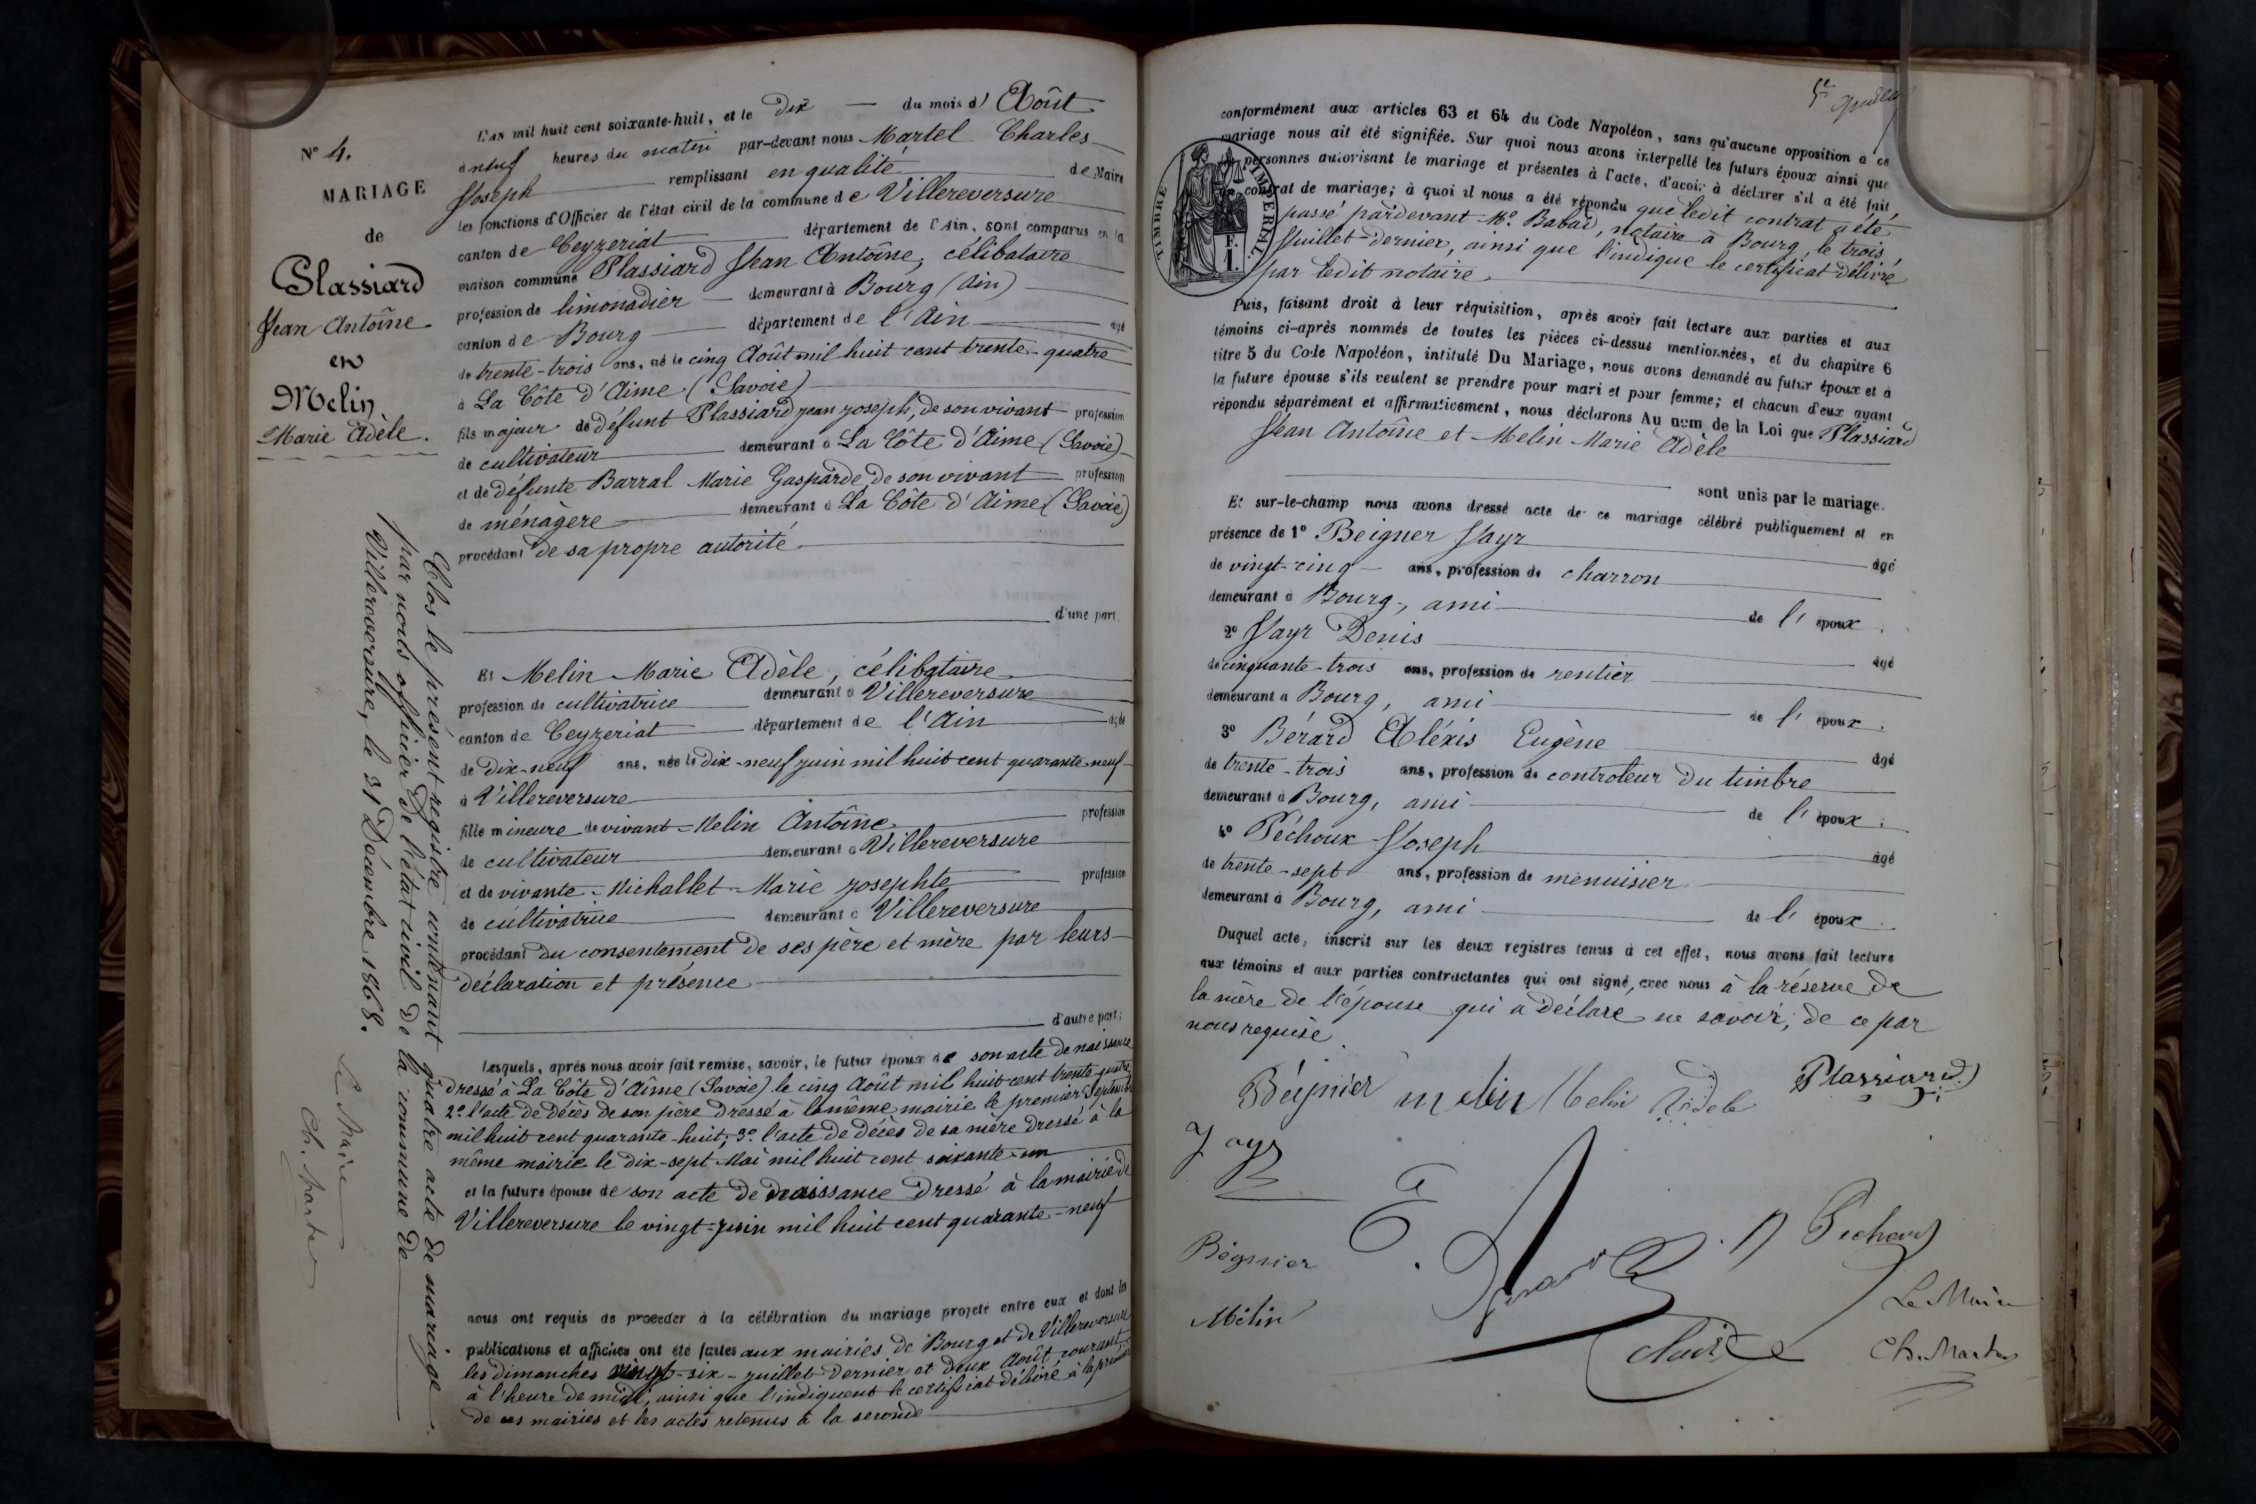 Nº 4.
MARIAGE
de
Plassiard
Jean Antoîne
en
Melin
Marie Adèle.
Clos le présent registre contenant quatre acte de mariage
par nous officier de l'état civil de la commune de
Villereversure, le 31 Décembre 1868.
Le Maire
Ch. Martel
L'an mil huit cent soixante-huit, et le dix du mois d' Août
à neuf heures du matin par-devant nous Martel Charles
Joseph remplissant en qualité de Maire
les fonctions d'Officier de l'état civil de la commune de Villereversure
canton de Ceyzeriat département de l'Ain, sont comparus en la
maison commune Plassiard Jean Antoîne, célibataire
profession de limonadier demeurant à Bourg (Ain)
canton de Bourg département de l'Ain âgé
de trente-trois ans, né le cinq Août mil huit cent trente-quatre
à La Côte d'Aime (Savoie)
fils majeur de défunt Plassiard jean joseph, de son vivant profession
de cultivateur demeurant à La Côte d'Aime (Savoie)
et de défunte Barral Marie Gasparde, de son vivant profession
de ménagère demeurant à La Côte d'Aime (Savoie)
procédant de sa propre autorité
d'une part
Et Melin Marie Adèle, célibataire
profession de cultivatrice demeurant à Villereversure
canton de Ceyzeriat département de l'Ain âgée
de dix-neuf ans, née le dix-neuf juin mil huit cent quarante-neuf
à Villereversure
fille mineure de vivant Melin Antoîne profession
de cultivateur demeurant à Villereversure
et de vivante Michallet Marie josephte profession
de cultivatrice demeurant à Villereversure
procédant du consentement de ses père et mère par leurs
déclaration et présence
d'autre part;
Lesquels, après nous avoir fait remise, savoir, le futur époux de son acte de naissance
dressé à La Côte d'Aîme (Savoie) le cinq Août mil huit cent trente-quatre
2º l'acte de décès de son père dressé à la même mairie le premier Septembre
mil huit cent quarante-huit; 3º l'acte de décès de sa mère dressé à la
même mairie le dix-sept Mai mil huit cent soixante-un
et la future épouse de son acte de naissance dressé à la mairie de
Villereversure le vingt-juin mil huit cent quarante-neuf
nous ont requis de procéder à la célébration du mariage projeté entre eux et dont les
publications et affiches ont été faites aux mairies de Bourg et de Villereversure
les dimanches vingt-six juillet dernier et deux Août courant,
à l'heure de midi, ainsi que l'indiquent le certificat délivré à la première
de ces mairies et les actes retenus à la seconde
conformément aux articles 63 et 64 du Code Napoléon, sans qu'aucune opposition à ce
mariage nous ait été signifiée. Sur quoi nous avons interpellé les futurs époux ainsi que
personnes autorisant le mariage et présentes à l'acte, d'avoir à déclarer s'il a été fait
contrat de mariage; à quoi il nous a été répondu que ledit contrat a été
passé pardevant Mº Babad, notaire à Bourg, le trois
Juillet dernier, ainsi que l'indique le certificat délivré
par ledit notaire
TIMBRE IMPERIAL.
Puis, faisant droit à leur réquisition, après avoir fait lecture aux parties et aux
témoins ci-après nommés de toutes les pièces ci-dessus mentionnées, et du chapitre 6
titre 5 du Code Napoléon, intitulé Du Mariage, nous avons demandé au futur époux et à
la future épouse s'ils veulent se prendre pour mari et pour femme; et chacun d'eux ayant
répondu séparément et affirmativement, nous déclarons Au nom de la Loi que Plassiard
Jean Antoîne et Melin Marie Adèle
sont unis par le mariage.
Et sur-le-champ nous avons dressé acte de ce mariage célébré publiquement et en
présence de 1º Beigner Jayr âgé
de vingt-cinq ans, profession de charron
demeurant à Bourg, ami de l' époux.
2º Jayr Denis âgé
de cinquante-trois ans, profession de rentier
demeurant à Bourg, ami de l' époux.
3º Bérard Aléxis Eugène âgé
de trente-trois ans, profession de controleur du timbre
demeurant à Bourg, ami de l' époux.
4º Péchoux Joseph âgé
de trente-sept ans, profession de menuisier
demeurant à Bourg, ami de l' époux.
Duquel acte, inscrit sur les deux registres tenus à cet effet, nous avons fait lecture
aux témoins et aux parties contractantes qui ont signé, avec nous à la réserve de
la mère de l'épouse qui a déclaré ne savoir, de ce par
nous requise.
Béignier melin Melin Adele Plassiard
Jayr
Bégnier
Mélin
Pechoux
Le Maire
Ch. Martel